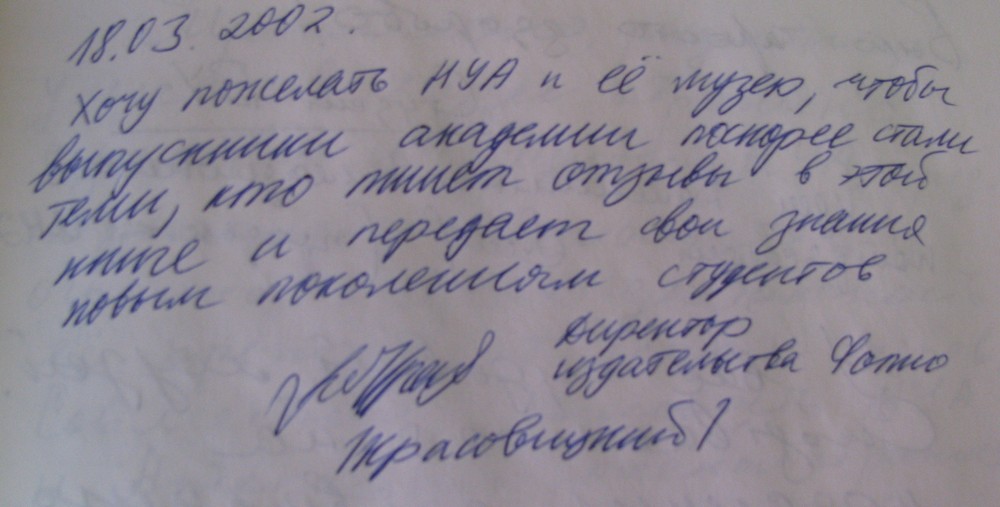 18.03.2002.
Хочу пожелать НУА и её музею, чтобы
выпускники академии поскорее стали
теми, кто пишет отзывы в этой
книге и передает свои знания
новым поколениям студентов
Директор
издательства Фолио
/Красовицкий/